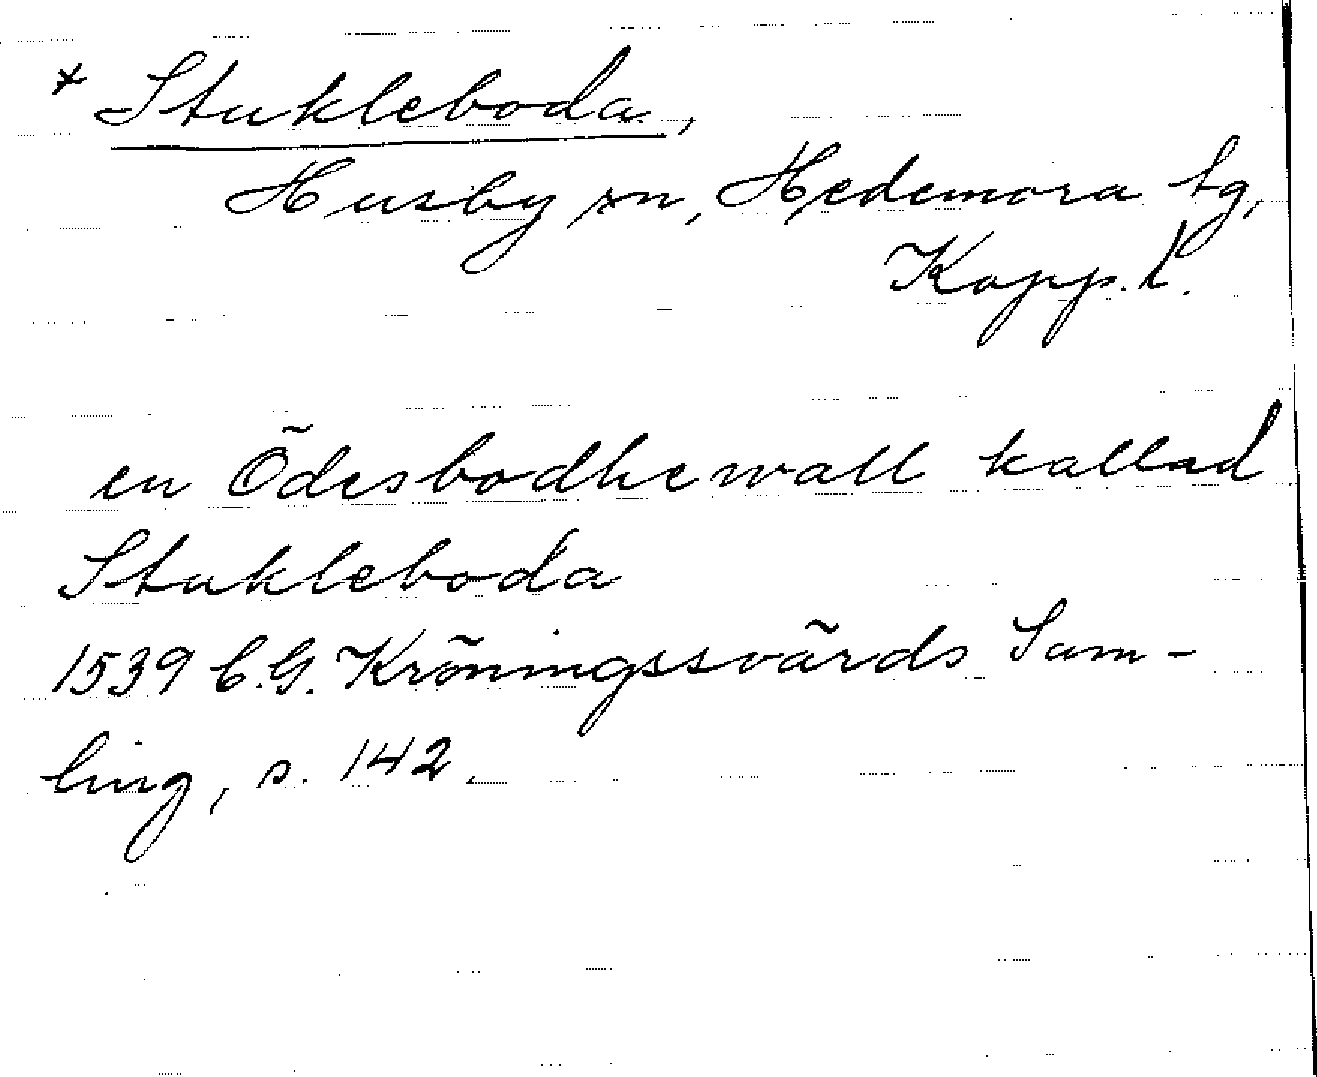 * Stukleboda,
Husby sn, Hedemora tg,
Kopp. l.
en Ödesbodhewall kallad
Stukleboda
1539 C.G. Kröningssvärds Sam-
ling, s. 142.